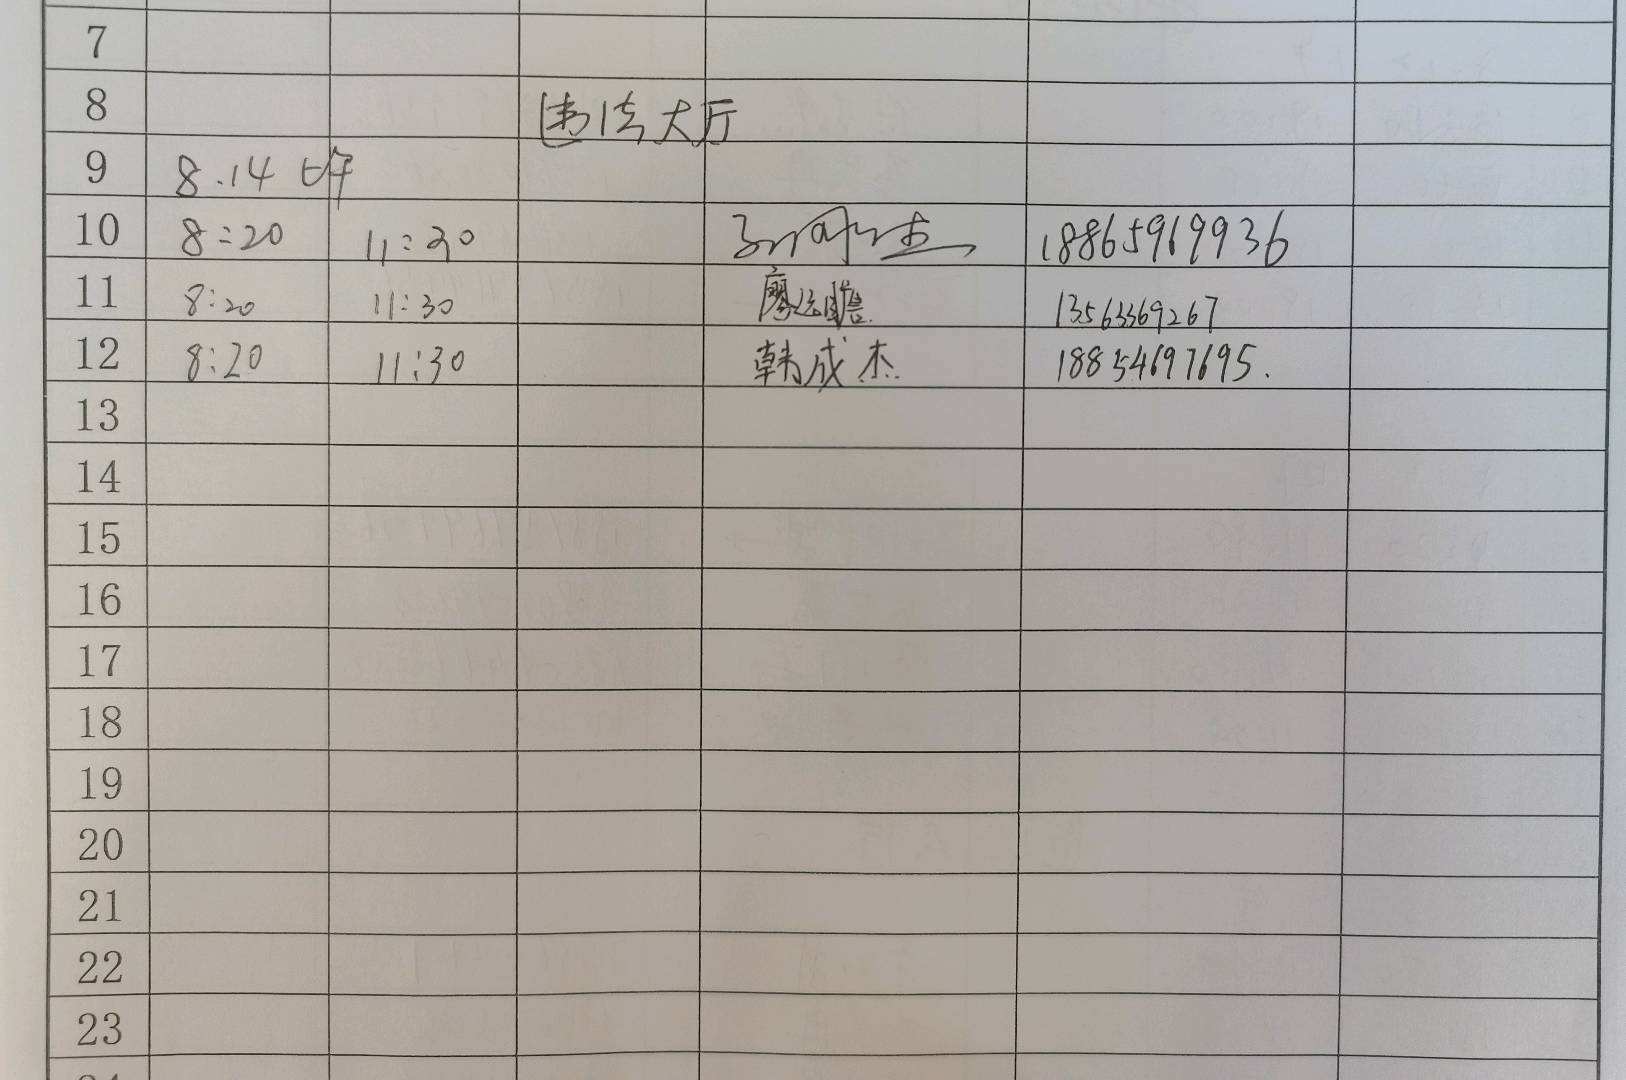 7
8 违法大厅
9 8.14 上午
10 8:20 11:30 18865969936
11 8:20 11:30 廖运瞻 13563369267
12 8:20 11:30 韩成杰 18854697695.
13
14
15
16
17
18
19
20
21
22
23